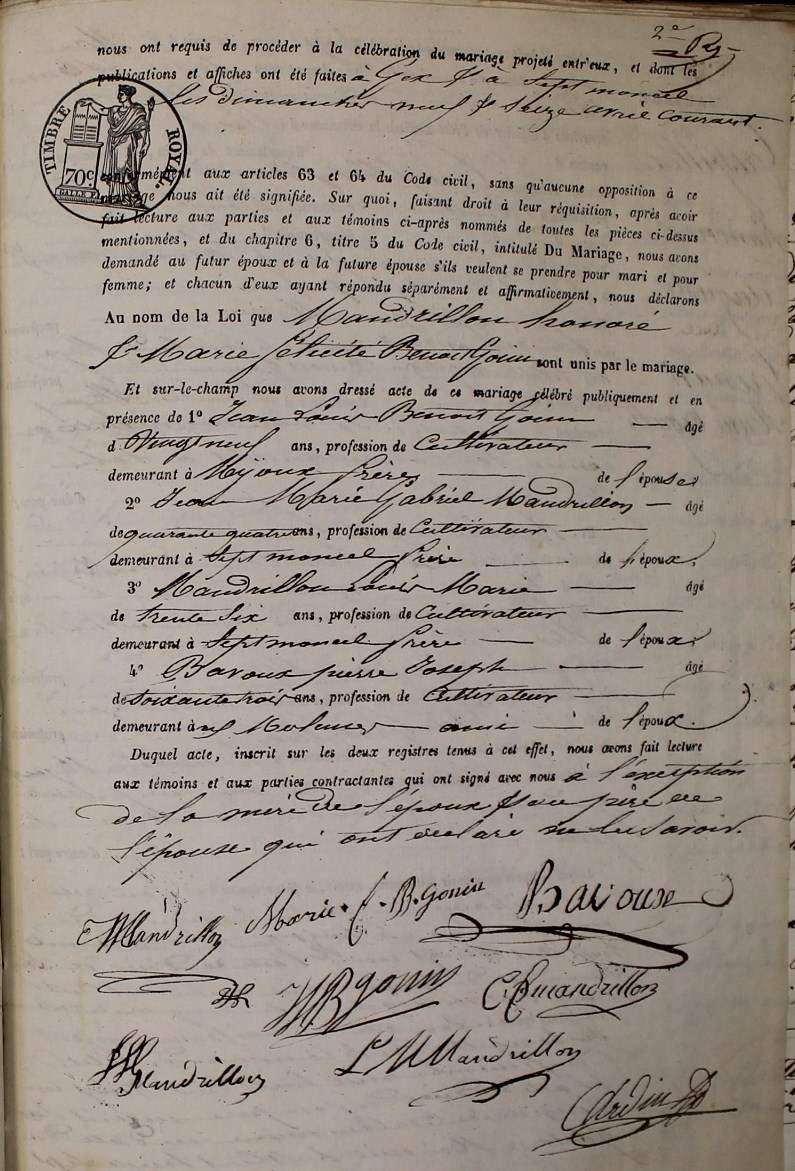 2e
nous ont requis de procéder à la célébration du mariage projeté entr'eux, et dont les
publications et affiches ont été faites à Gex & à Septmoncel
les dimanches neuf & seize avril courant.
TIMBRE ROYAL
70c
conformément aux articles 63 et 64 du Code civil, sans qu'aucune opposition à ce
mariage nous ait été signifiée. Sur quoi, faisant droit à leur réquisition, après avoir
fait lecture aux parties et aux témoins ci-après nommés de toutes les pièces ci-dessus
mentionnées, et du chapitre 6, titre 5 du Code civil, intitulé Du Mariage, nous avons
demandé au futur époux et à la future épouse s'ils veulent se prendre pour mari et pour
femme; et chacun d'eux ayant répondu séparément et affirmativement, nous déclarons
Au nom de la Loi que Mandrillon honoré
& Marie félicité Benoit Gonin sont unis par le mariage.
Et sur-le-champ nous avons dressé acte de ce mariage célébré publiquement et en
présence de 1o Jean Louis Benoit Gonin âgé
d Vingt neuf ans, profession de Cultivateur
demeurant à Mijoux frère de l'épouse
2o Jean Marie Gabriel Mandrillon âgé
de quarante quatre ans, profession de Cultivateur
demeurant à Septmoncel frère de l'époux,
3o Mandrillon Louis Marie âgé
de trente Six ans, profession de Cultivateur
demeurant à Septmoncel frère de l'époux
4o Bavoux pierre Joseph âgé
de Soixante trois ans, profession de Cultivateur
demeurant à Molunes ami de l'époux.
Duquel acte, inscrit sur les deux registres tenus à cet effet, nous avons fait lecture
aux témoins et aux parties contractantes qui ont signé avec nous à l'exception
de la mère de l'époux & du père de
l'épouse qui ont déclaré ne le savoir.
Mandrillon Marie. f. B. gonin Bavoux
B gonin mandrillon
Mandrillon L M Mandrillon